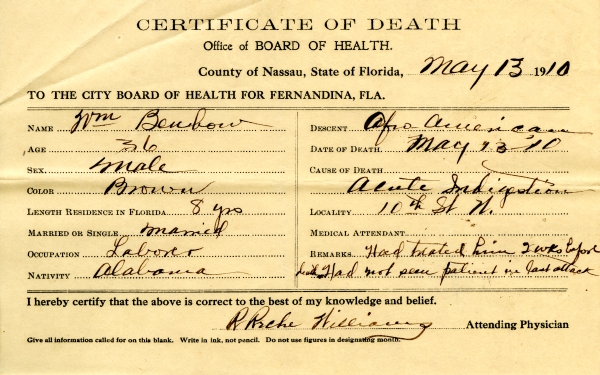 CERTIFICATE OF DEATH
Office of BOARD OF HEALTH.
County of Nassau, State of Florida, May 13 1910
TO THE CITY BOARD OF HEALTH FOR FERNANDINA, FLA.
NAME Wm Benbow
AGE 36
SEX. Male
COLOR Brown
LENGTH RESIDENCE IN FLORIDA 8 yrs
MARRIED OR SINGLE Married
OCCUPATION Laborer
NATIVITY Alabama
DESCENT Afro American
DATE OF DEATH. May 13 '10
CAUSE OF DEATH
Acute Indigestion
LOCALITY 10th St N.
MEDICAL ATTENDANT
REMARKS Had treated him 2 wks before
death Had not seen patient in last attack
I hereby certify that the above is correct to the best of my knowledge and belief.
Williams Attending Physician
Give all information called for on this blank. Write in ink, not pencil. Do not use figures in designating month.